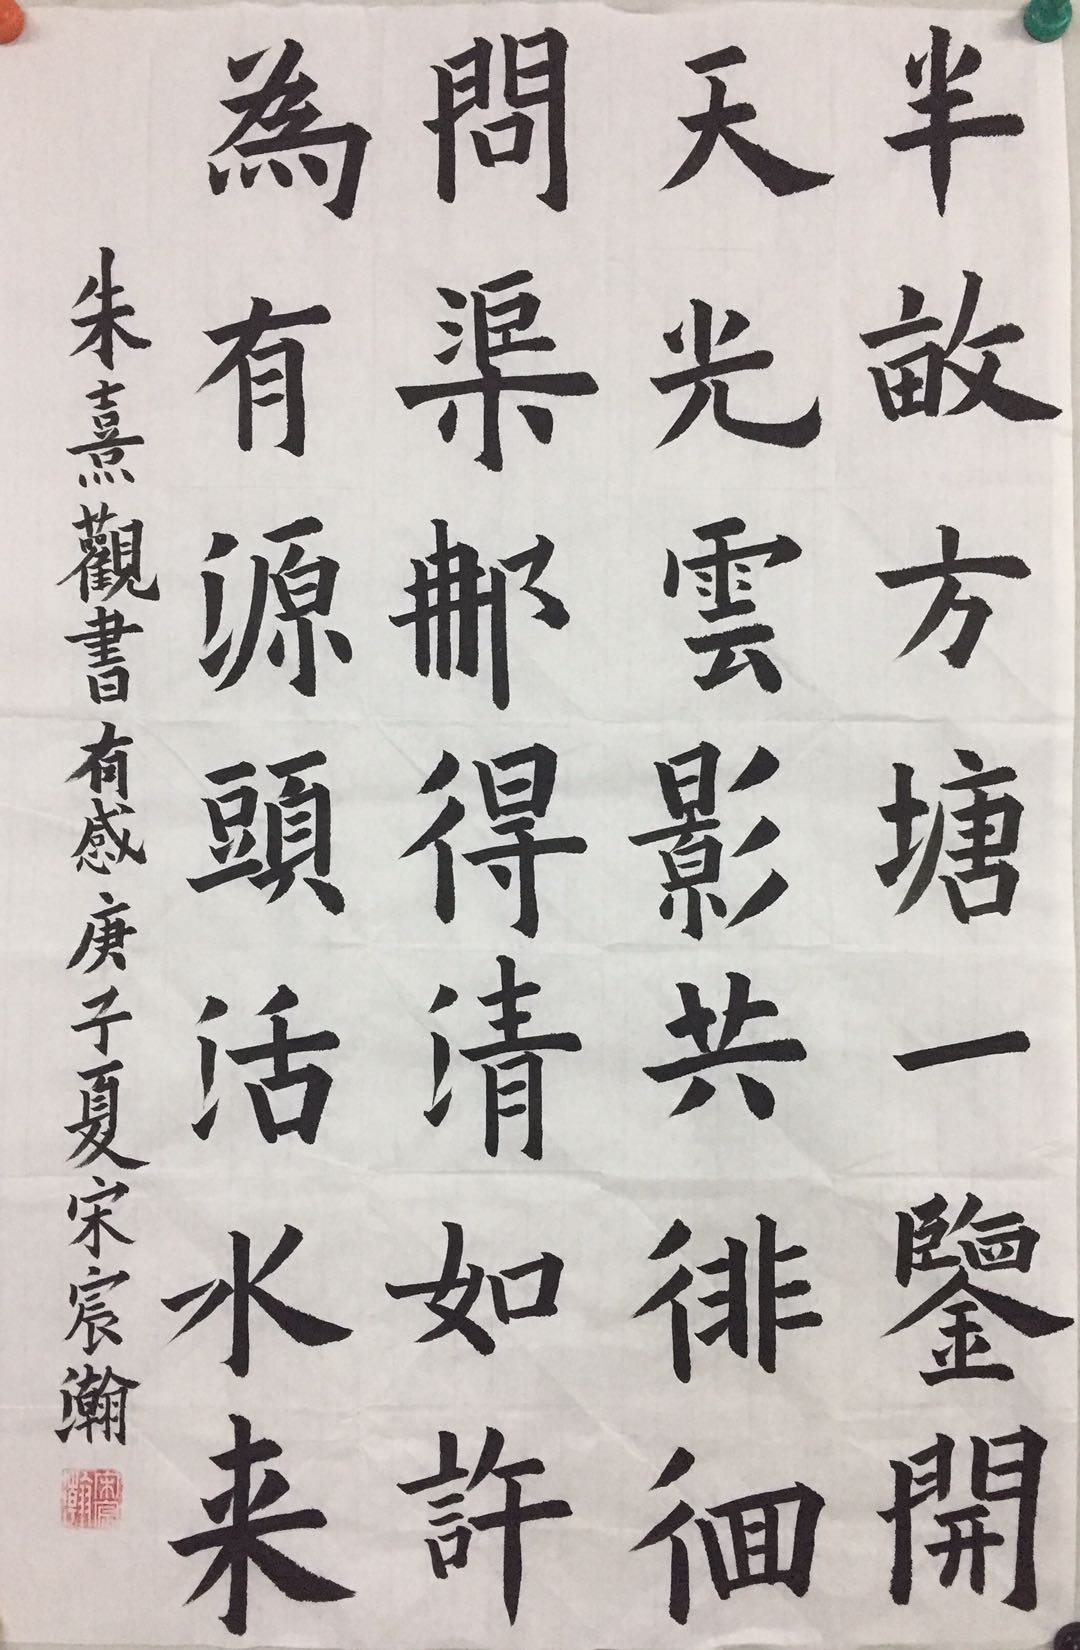 半畝方塘一鑒開
天光雲影共徘徊
問渠那得清如許
為有源頭活水来
朱熹觀書有感庚子夏宋宸瀚